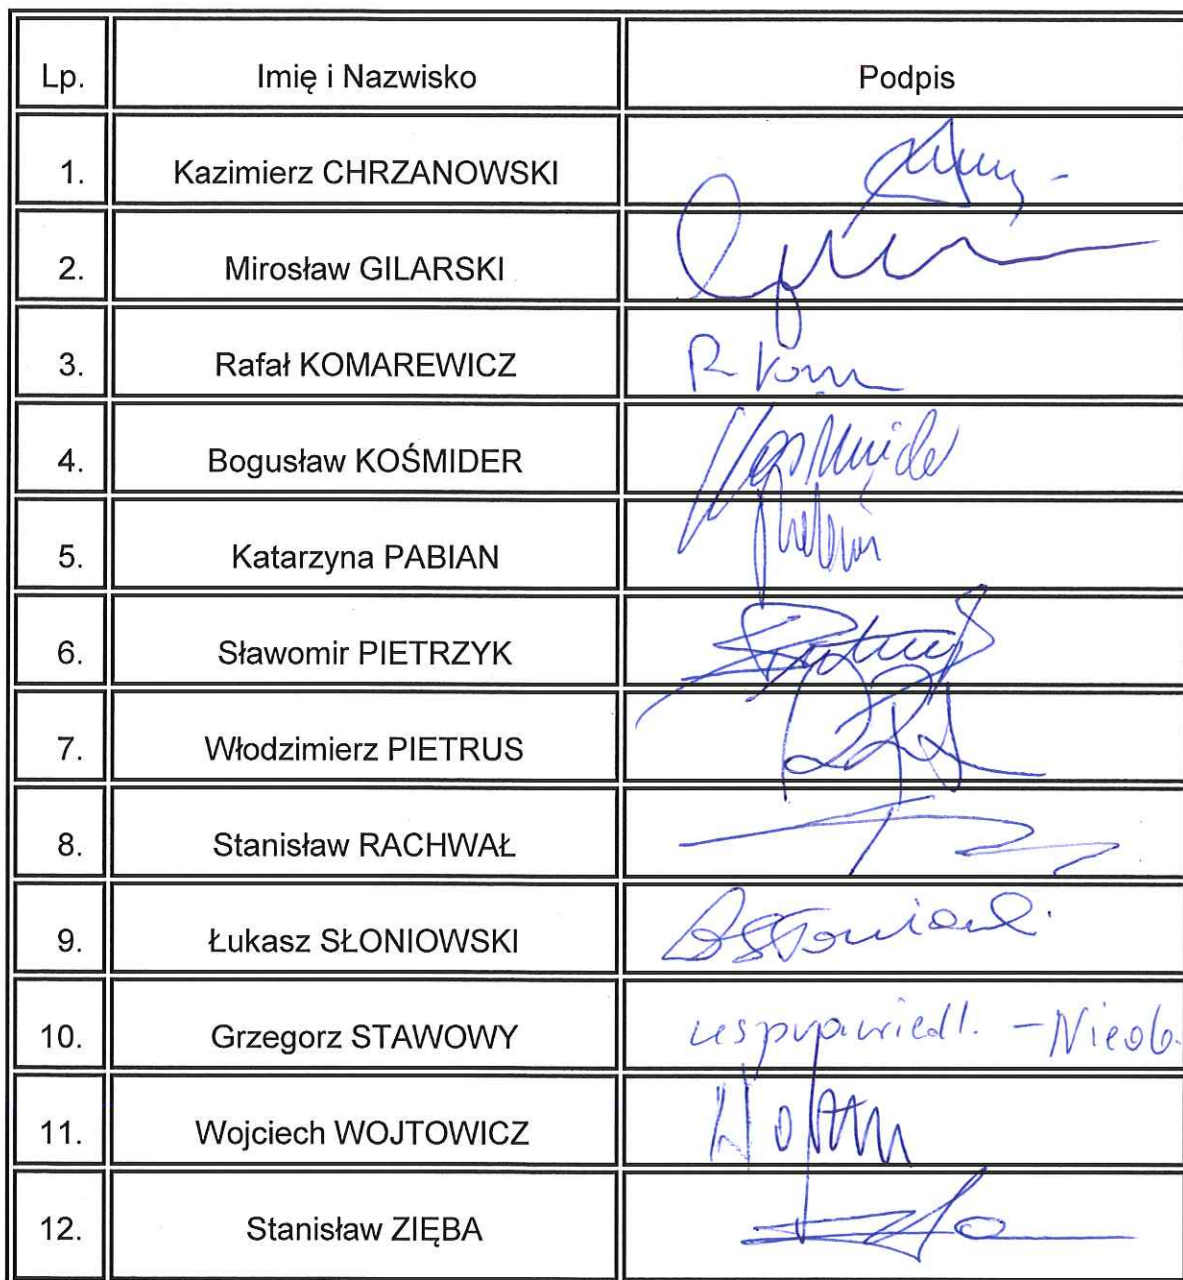 Lp. Imię i Nazwisko Podpis
1. Kazimierz CHRZANOWSKI
2. Mirosław GILARSKI
3. Rafał KOMAREWICZ R Kom
4. Bogusław KOŚMIDER
5. Katarzyna PABIAN
6. Sławomir PIETRZYK
7. Włodzimierz PIETRUS
8. Stanisław RACHWAŁ
9. Łukasz SŁONIOWSKI
10. Grzegorz STAWOWY usprawiedl. - Nieob.
11. Wojciech WOJTOWICZ
12. Stanisław ZIĘBA